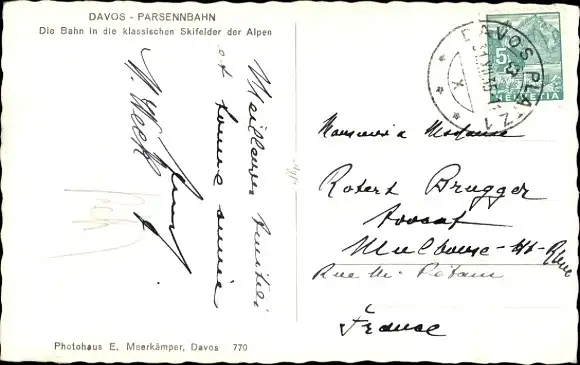 DAVOS - PARSENNBAHN
Die Bahn in die klassischen Skifelder der Alpen
Meilleures Amitiés
et bonne année
DAVOS PLATZ 1
5
HELVETIA
Monsieur & Madame
Robert Brugger
Avocat
Mulhouse - Ht-Rhin
Rue M. Pétain
France
Photohaus E. Meerkämper, Davos 770